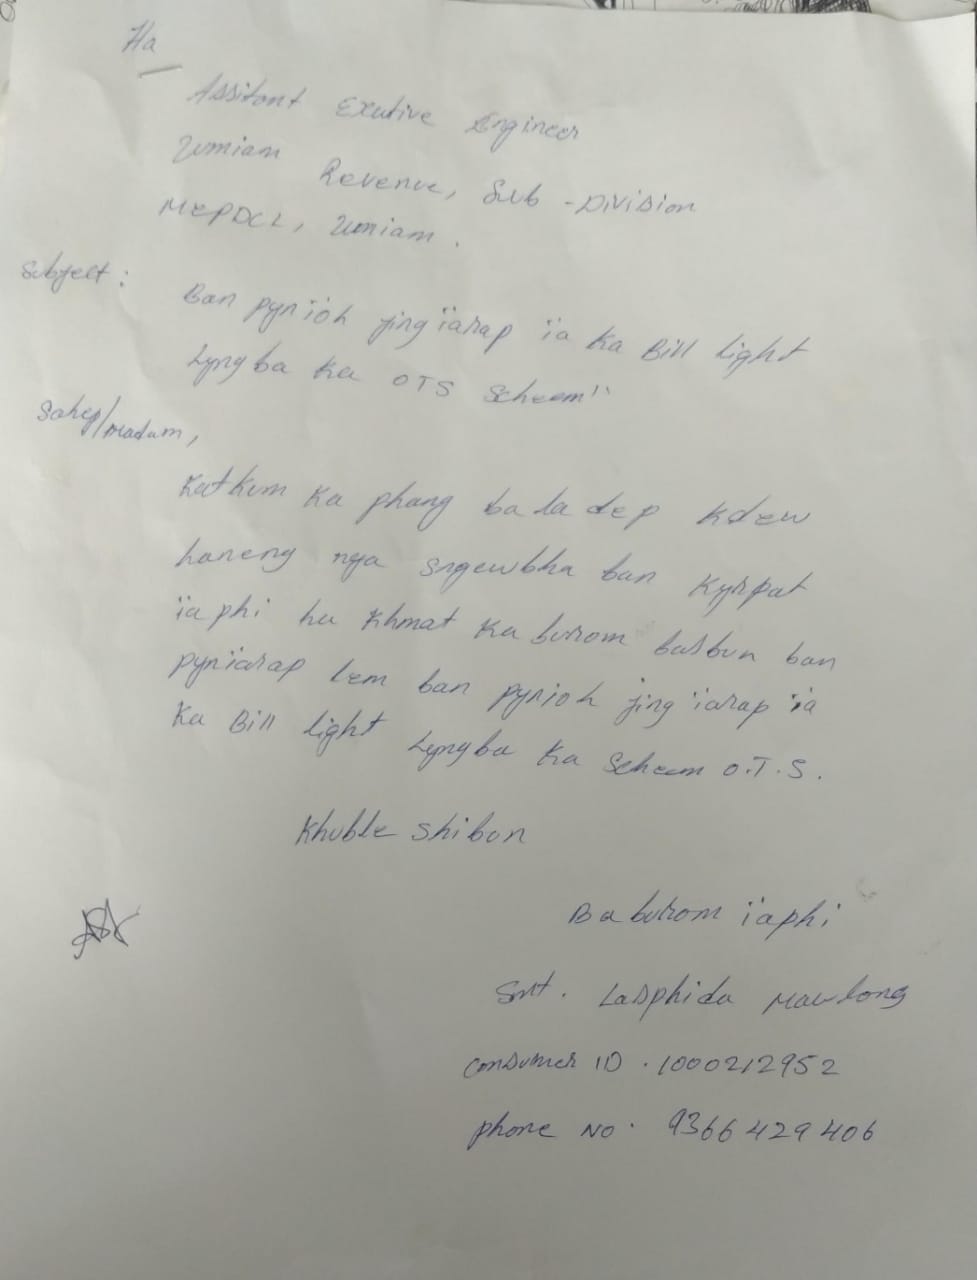 Ha
Assitant Exutive Engineer
Umiam Revenue, Sub - Division
MEPDCL, Umiam.
Subject :
Ban pynïoh jingïarap ïa ka Bill light
Lyngba ka OTS Scheem"
Sahep/madam,
Katkum ka phang ba la dep kdew
haneng nga sngewbha ban kyrpat
ïa phi ha khmat ka burom barbun ban
pynïarap lem ban pynïoh jingïarap ïa
ka Bill light Lyngba ka Scheem O.T.S.
Khuble shibon
Ba burom ïaphi
Smt. Lasphida Mawlong
Consumer ID . 1000212952
phone No . 9366429406